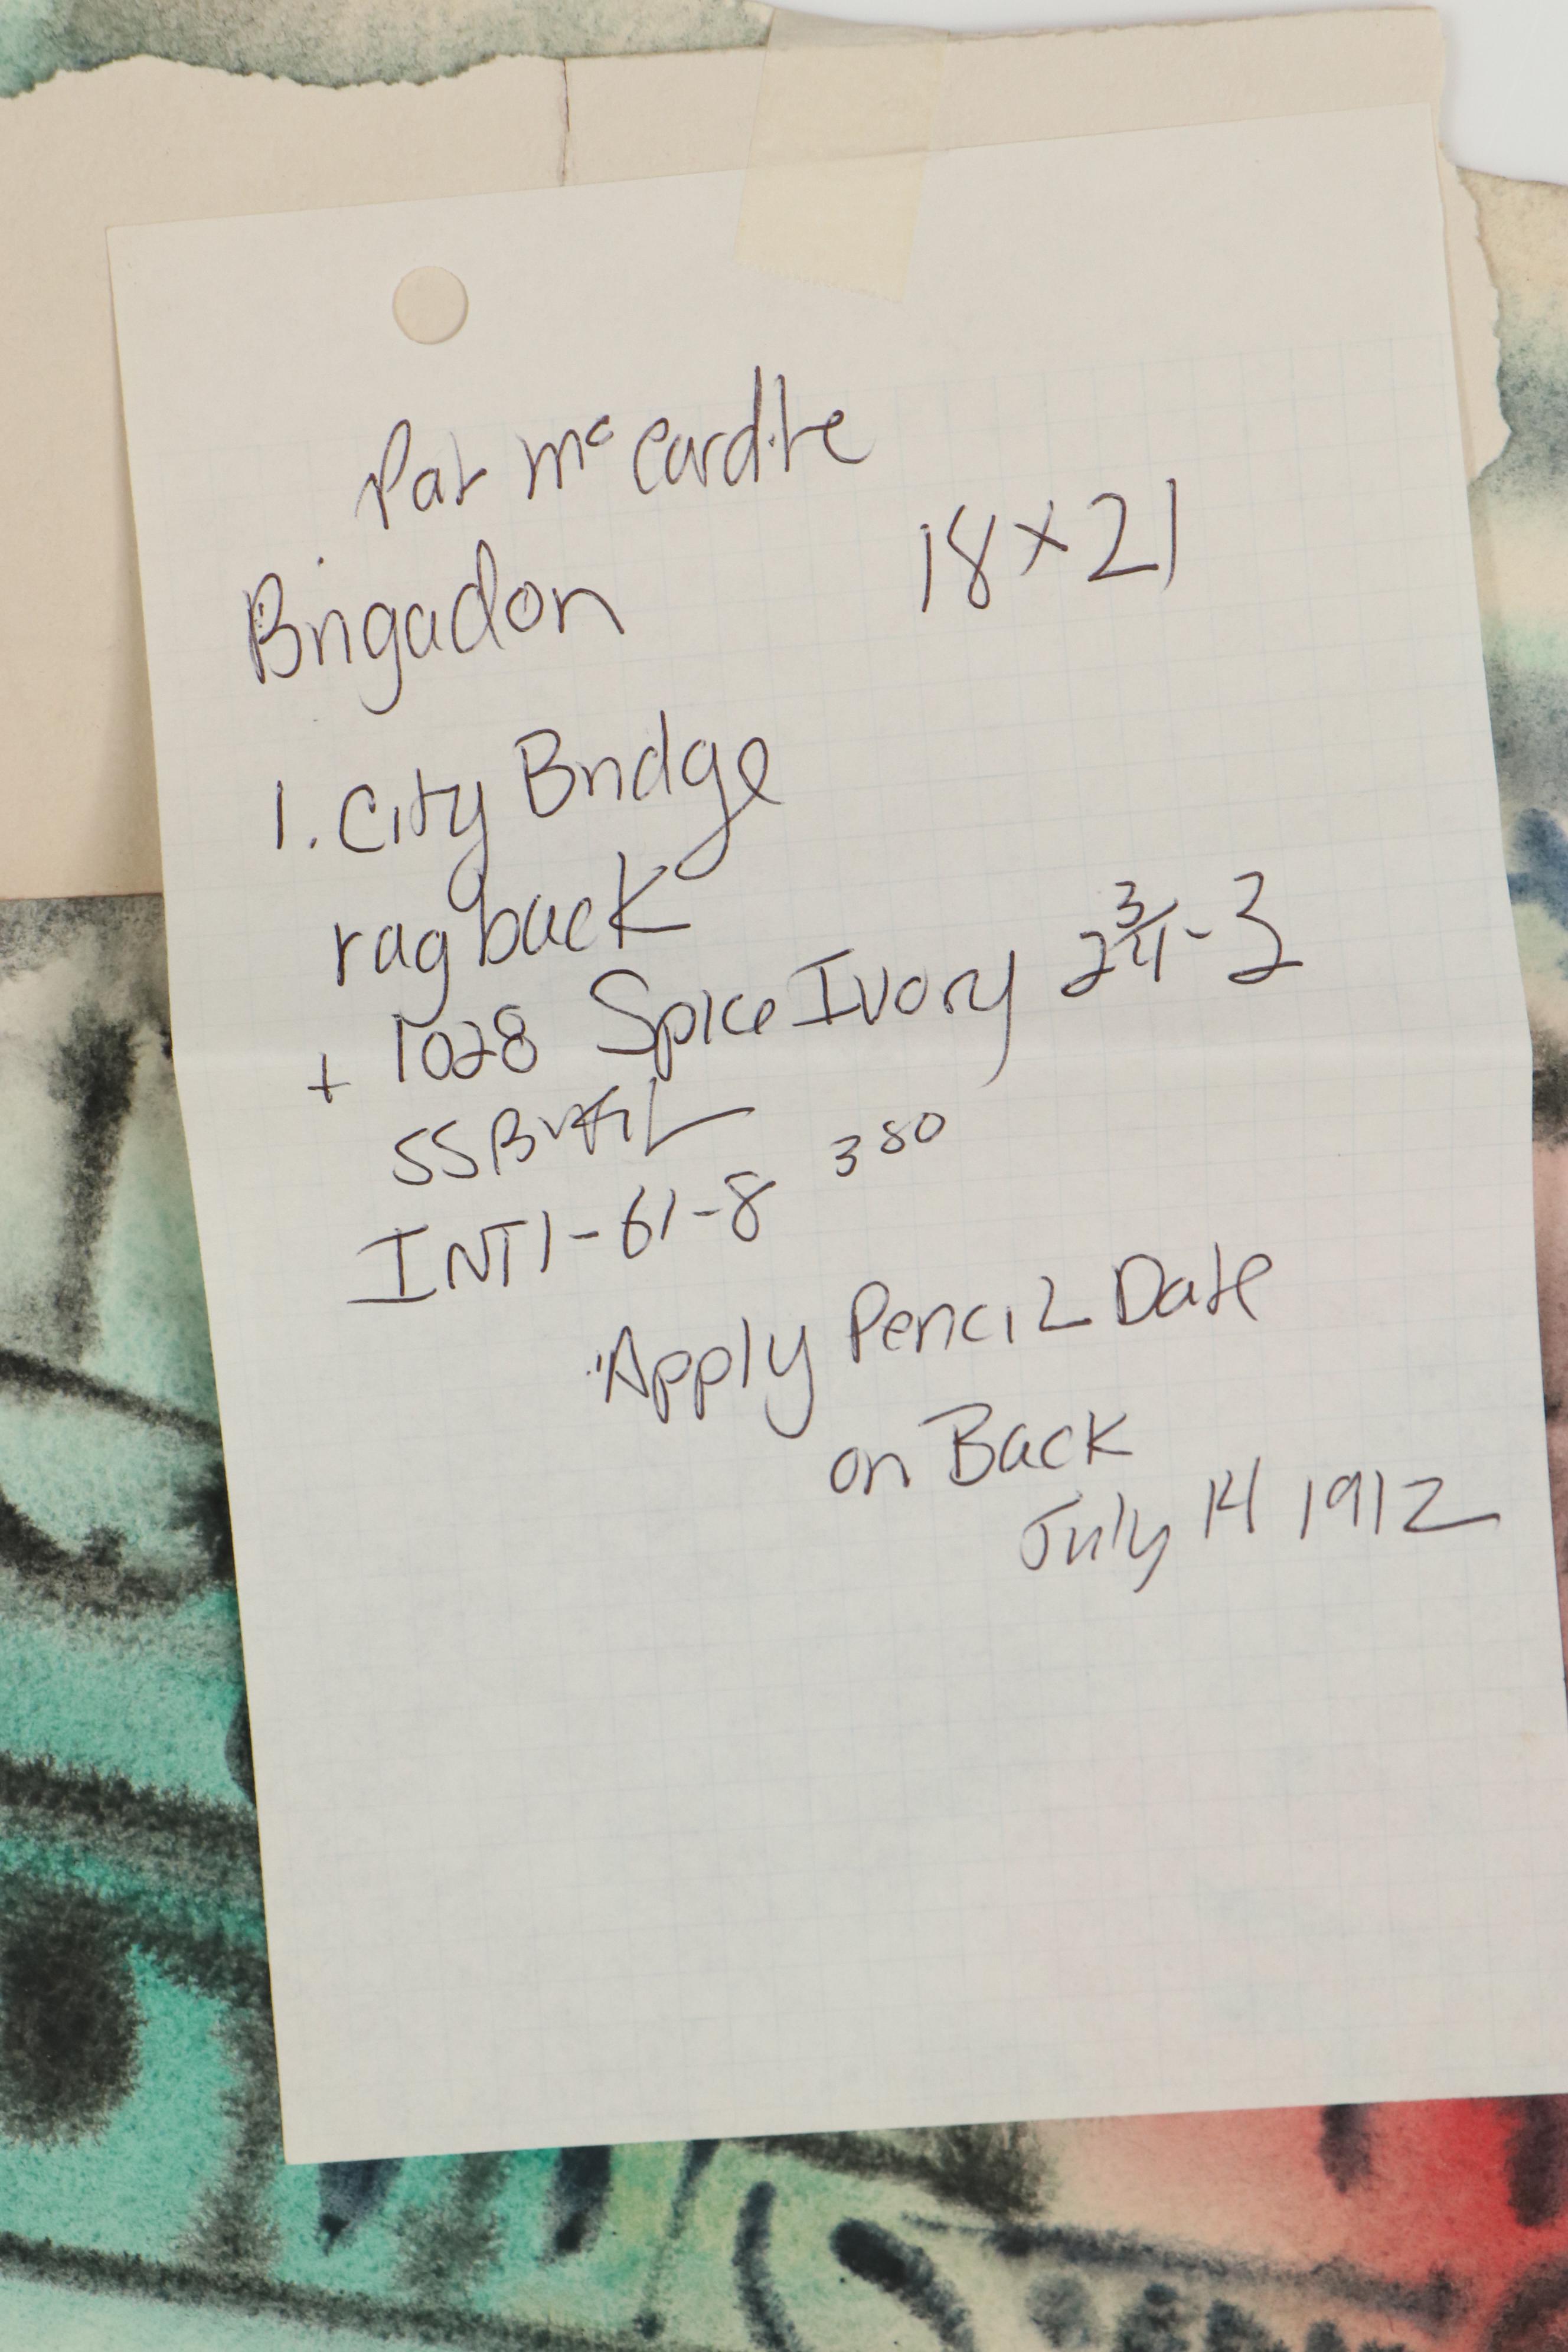 Pat McCardle
Brigadon 18x21
1. City Bridge
rag back
+ 1028 Spice Ivory 2 3/4 - 3
INT1-61-8 3 80
"Apply Pencil Date
on Back
July 14 1912